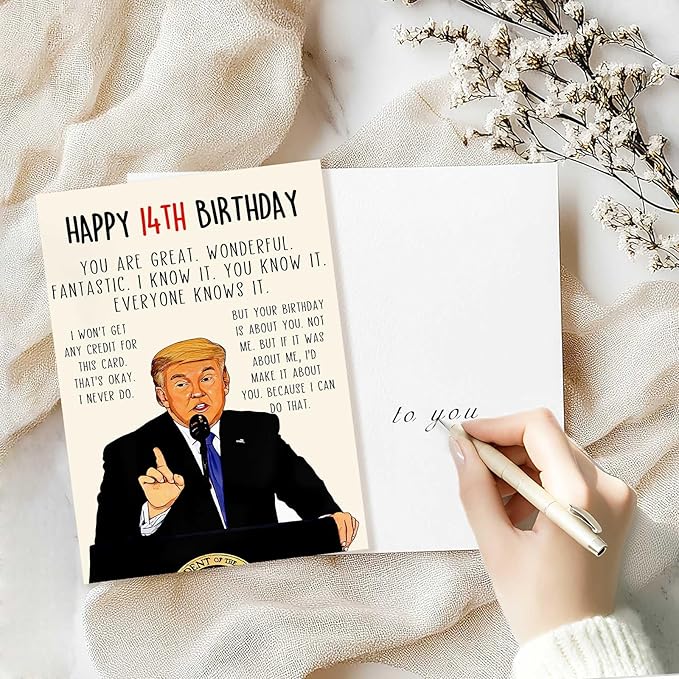 HAPPY 14TH BIRTHDAY
YOU ARE GREAT. WONDERFUL.
FANTASTIC. I KNOW IT. YOU KNOW IT.
EVERYONE KNOWS IT.
I WON'T GET
ANY CREDIT FOR
THIS CARD.
THAT'S OKAY.
I NEVER DO.
BUT YOUR BIRTHDAY
IS ABOUT YOU. NOT
ME. BUT IF IT WAS
ABOUT ME, I'D
MAKE IT ABOUT
YOU. BECAUSE I CAN
DO THAT.
DENT OF THE
to you